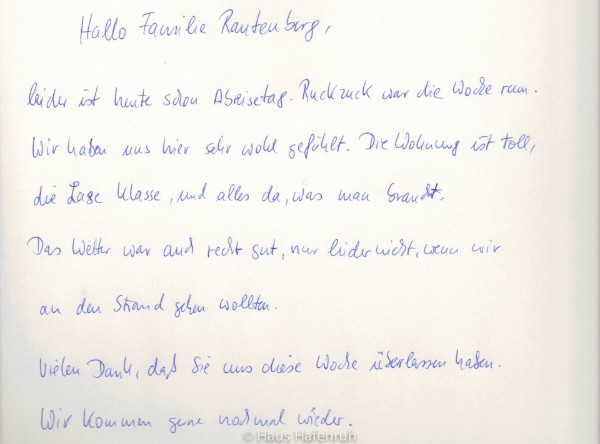 Hallo Familie Rautenberg,
leider ist heute schon Abreisetag. Ruckzuck war die Woche rum.
Wir haben uns hier sehr wohl gefühlt. Die Wohnung ist toll,
die Lage Klasse, und alles da, was man braucht.
Das Wetter war auch recht gut, nur leider nicht, wenn wir
an den Strand gehen wollten.
Vielen Dank, daß Sie uns diese Woche überlassen haben.
Wir kommen gerne nochmal wieder.
© Haus Hafenruh